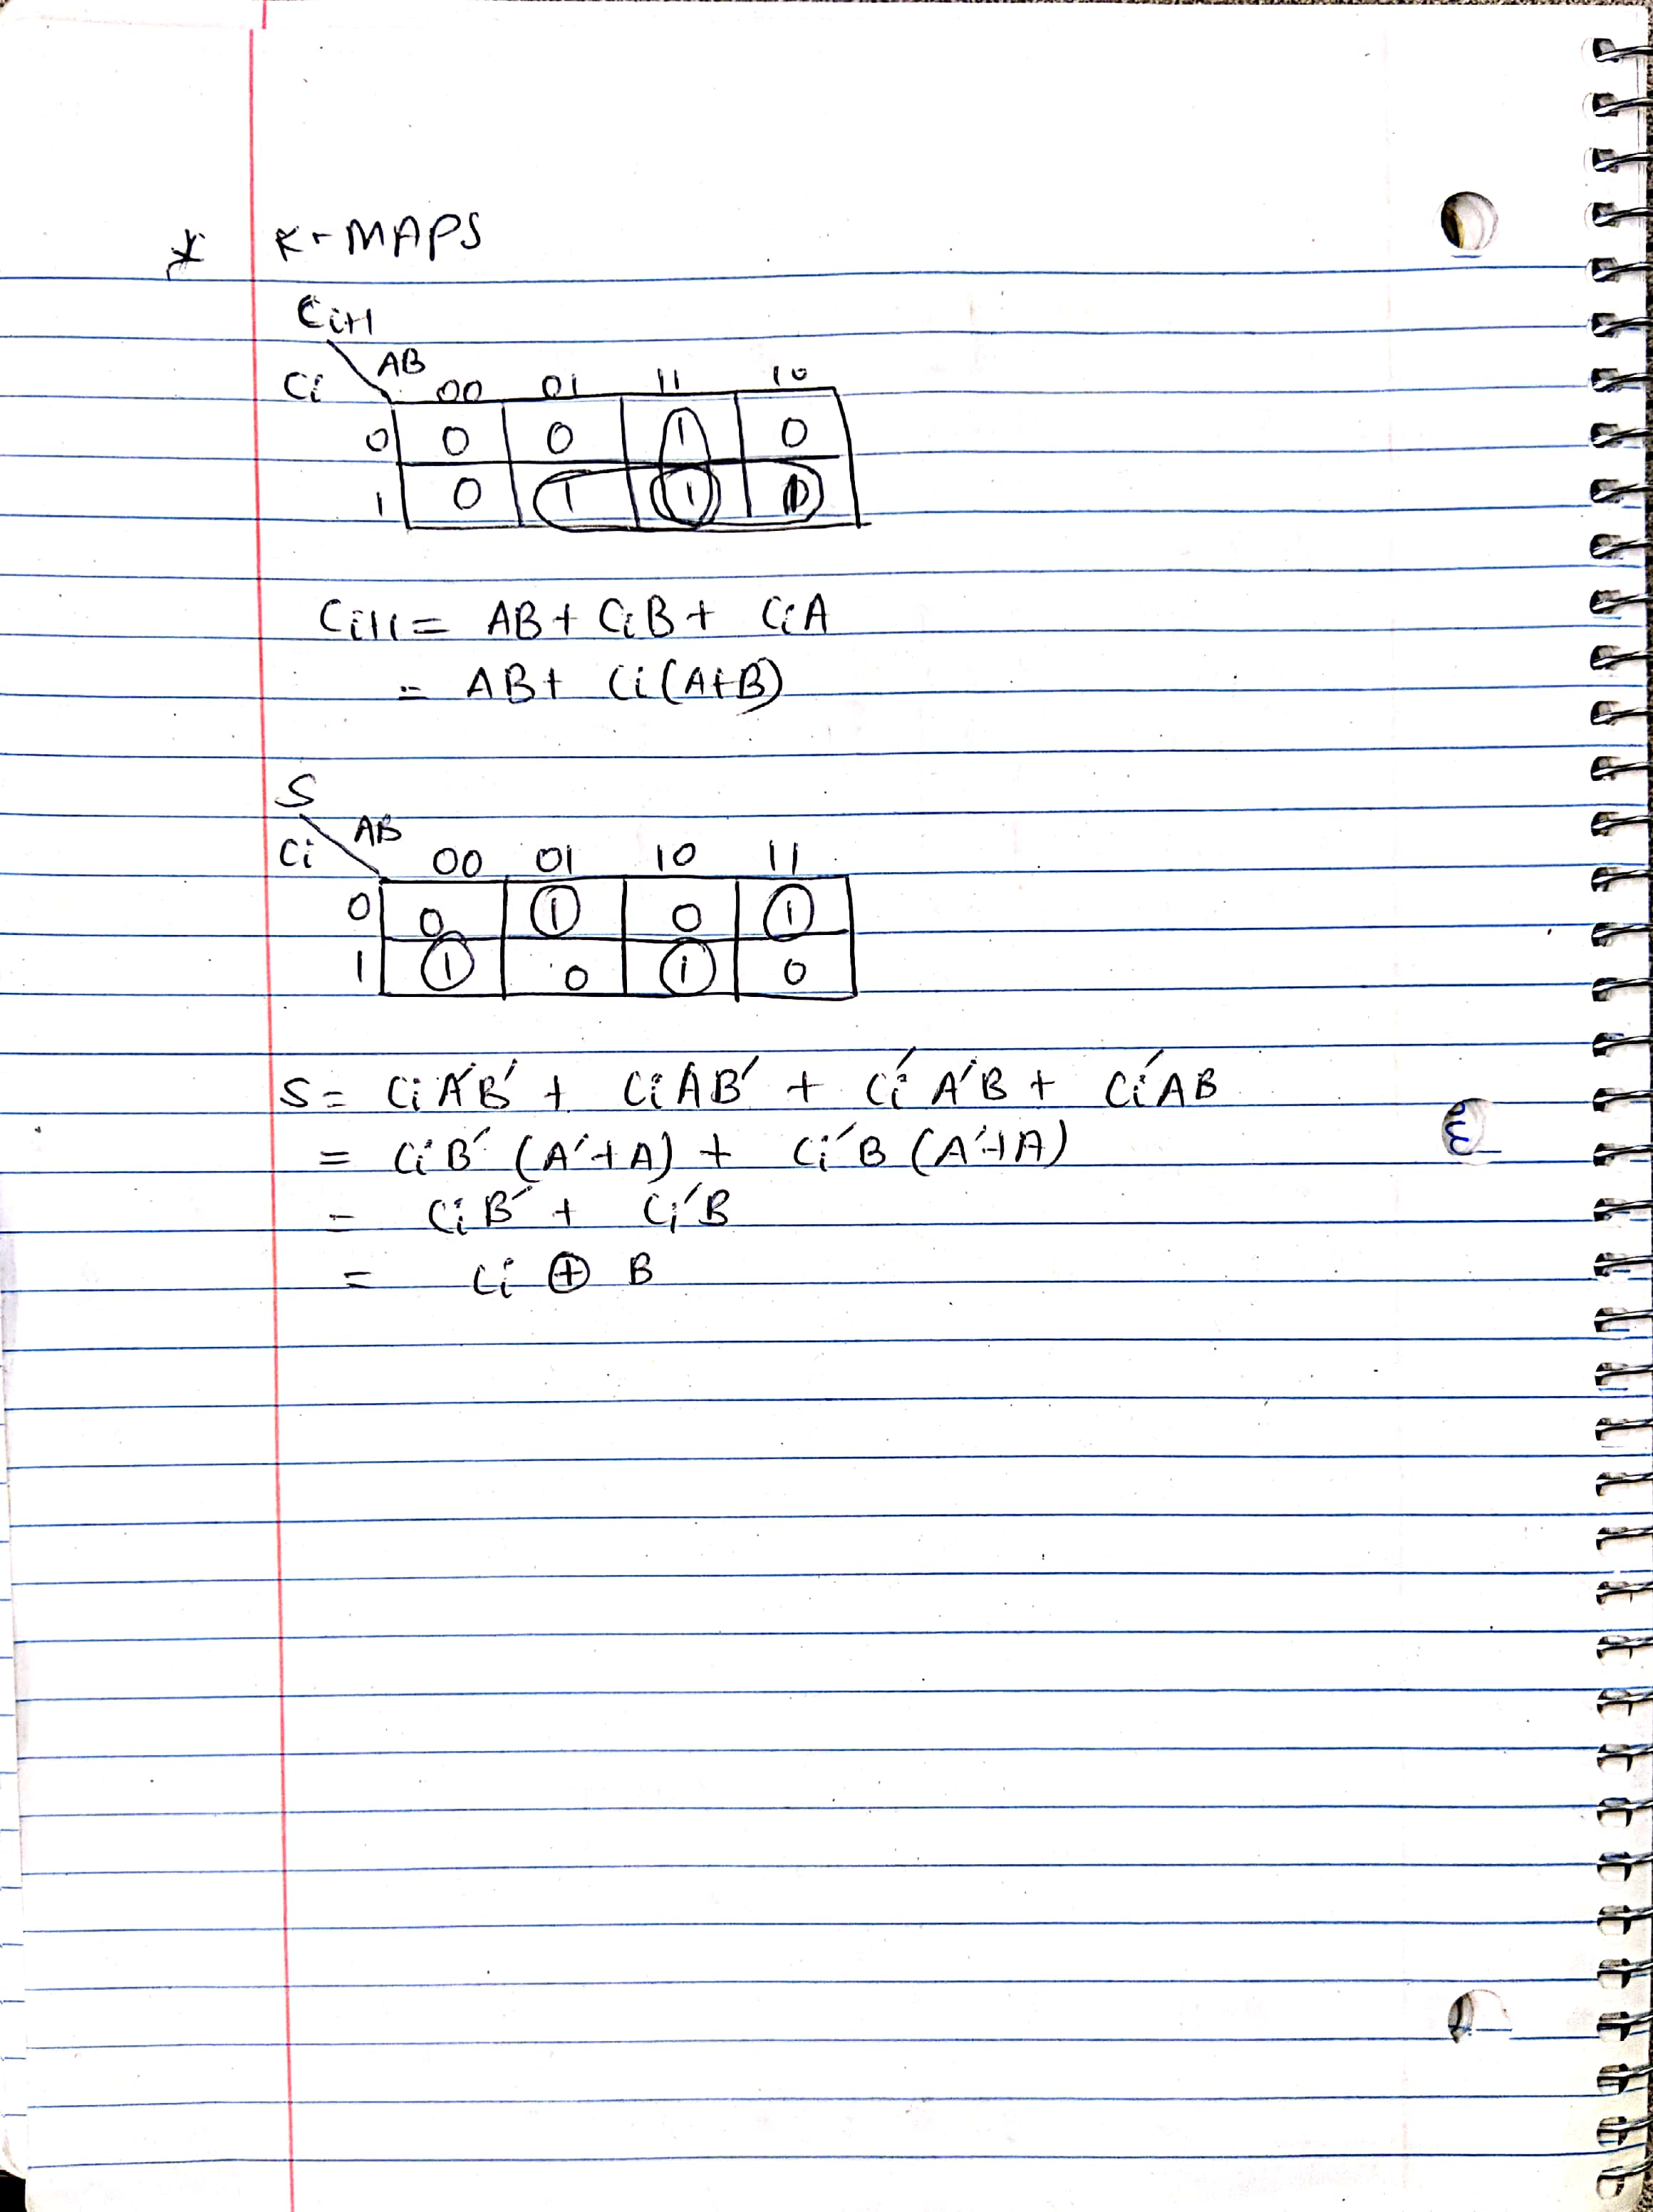 * K-MAPS
Ci+1
Ci AB 00 01 11 10
0 0 0 1 0
1 0 1 1 1
Ci+1 = AB + CiB + CiA
= AB + Ci(A+B)
S
Ci AB 00 01 10 11
0 0 1 0 1
1 1 0 1 0
S = CiA'B' + CiAB' + Ci'A'B + Ci'AB
= CiB' (A'+A) + Ci'B (A'+A)
= CiB' + Ci'B
= Ci ⊕ B